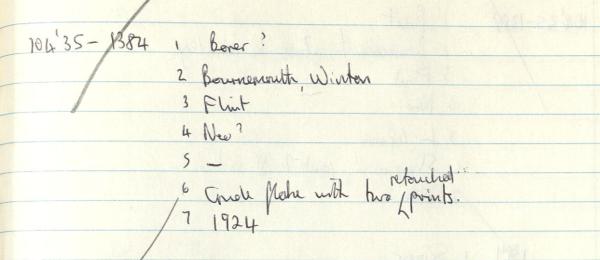 104'35 - 1384 1 Borer ?
2 Bournemouth, Winton
3 Flint
4 Neo ?
5 —
6 Crude flake with two retouched points.
7 1924